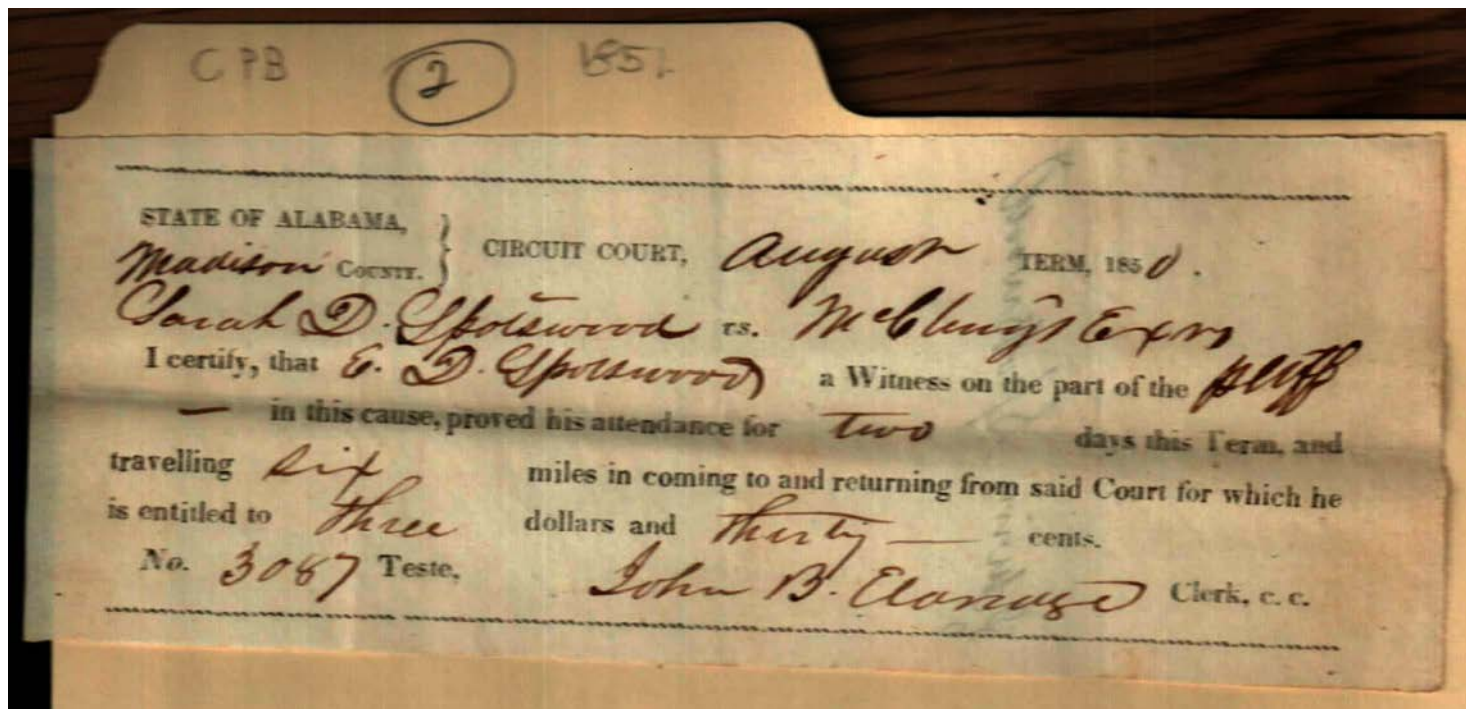 CPB 2 1851
STATE OF ALABAMA,
Madison COUNTY. } CIRCUIT COURT, August TERM, 1850.
Sarah D. Spotswood vs. McClung's Exrs
I certify, that E. D. Spotswood a Witness on the part of the plff
— in this cause, proved his attendance for two days this Term, and
travelling six miles in coming to and returning from said Court for which he
is entitled to three dollars and thirty — cents.
No. 3087 Teste, John B. Eldridge Clerk, c. c.